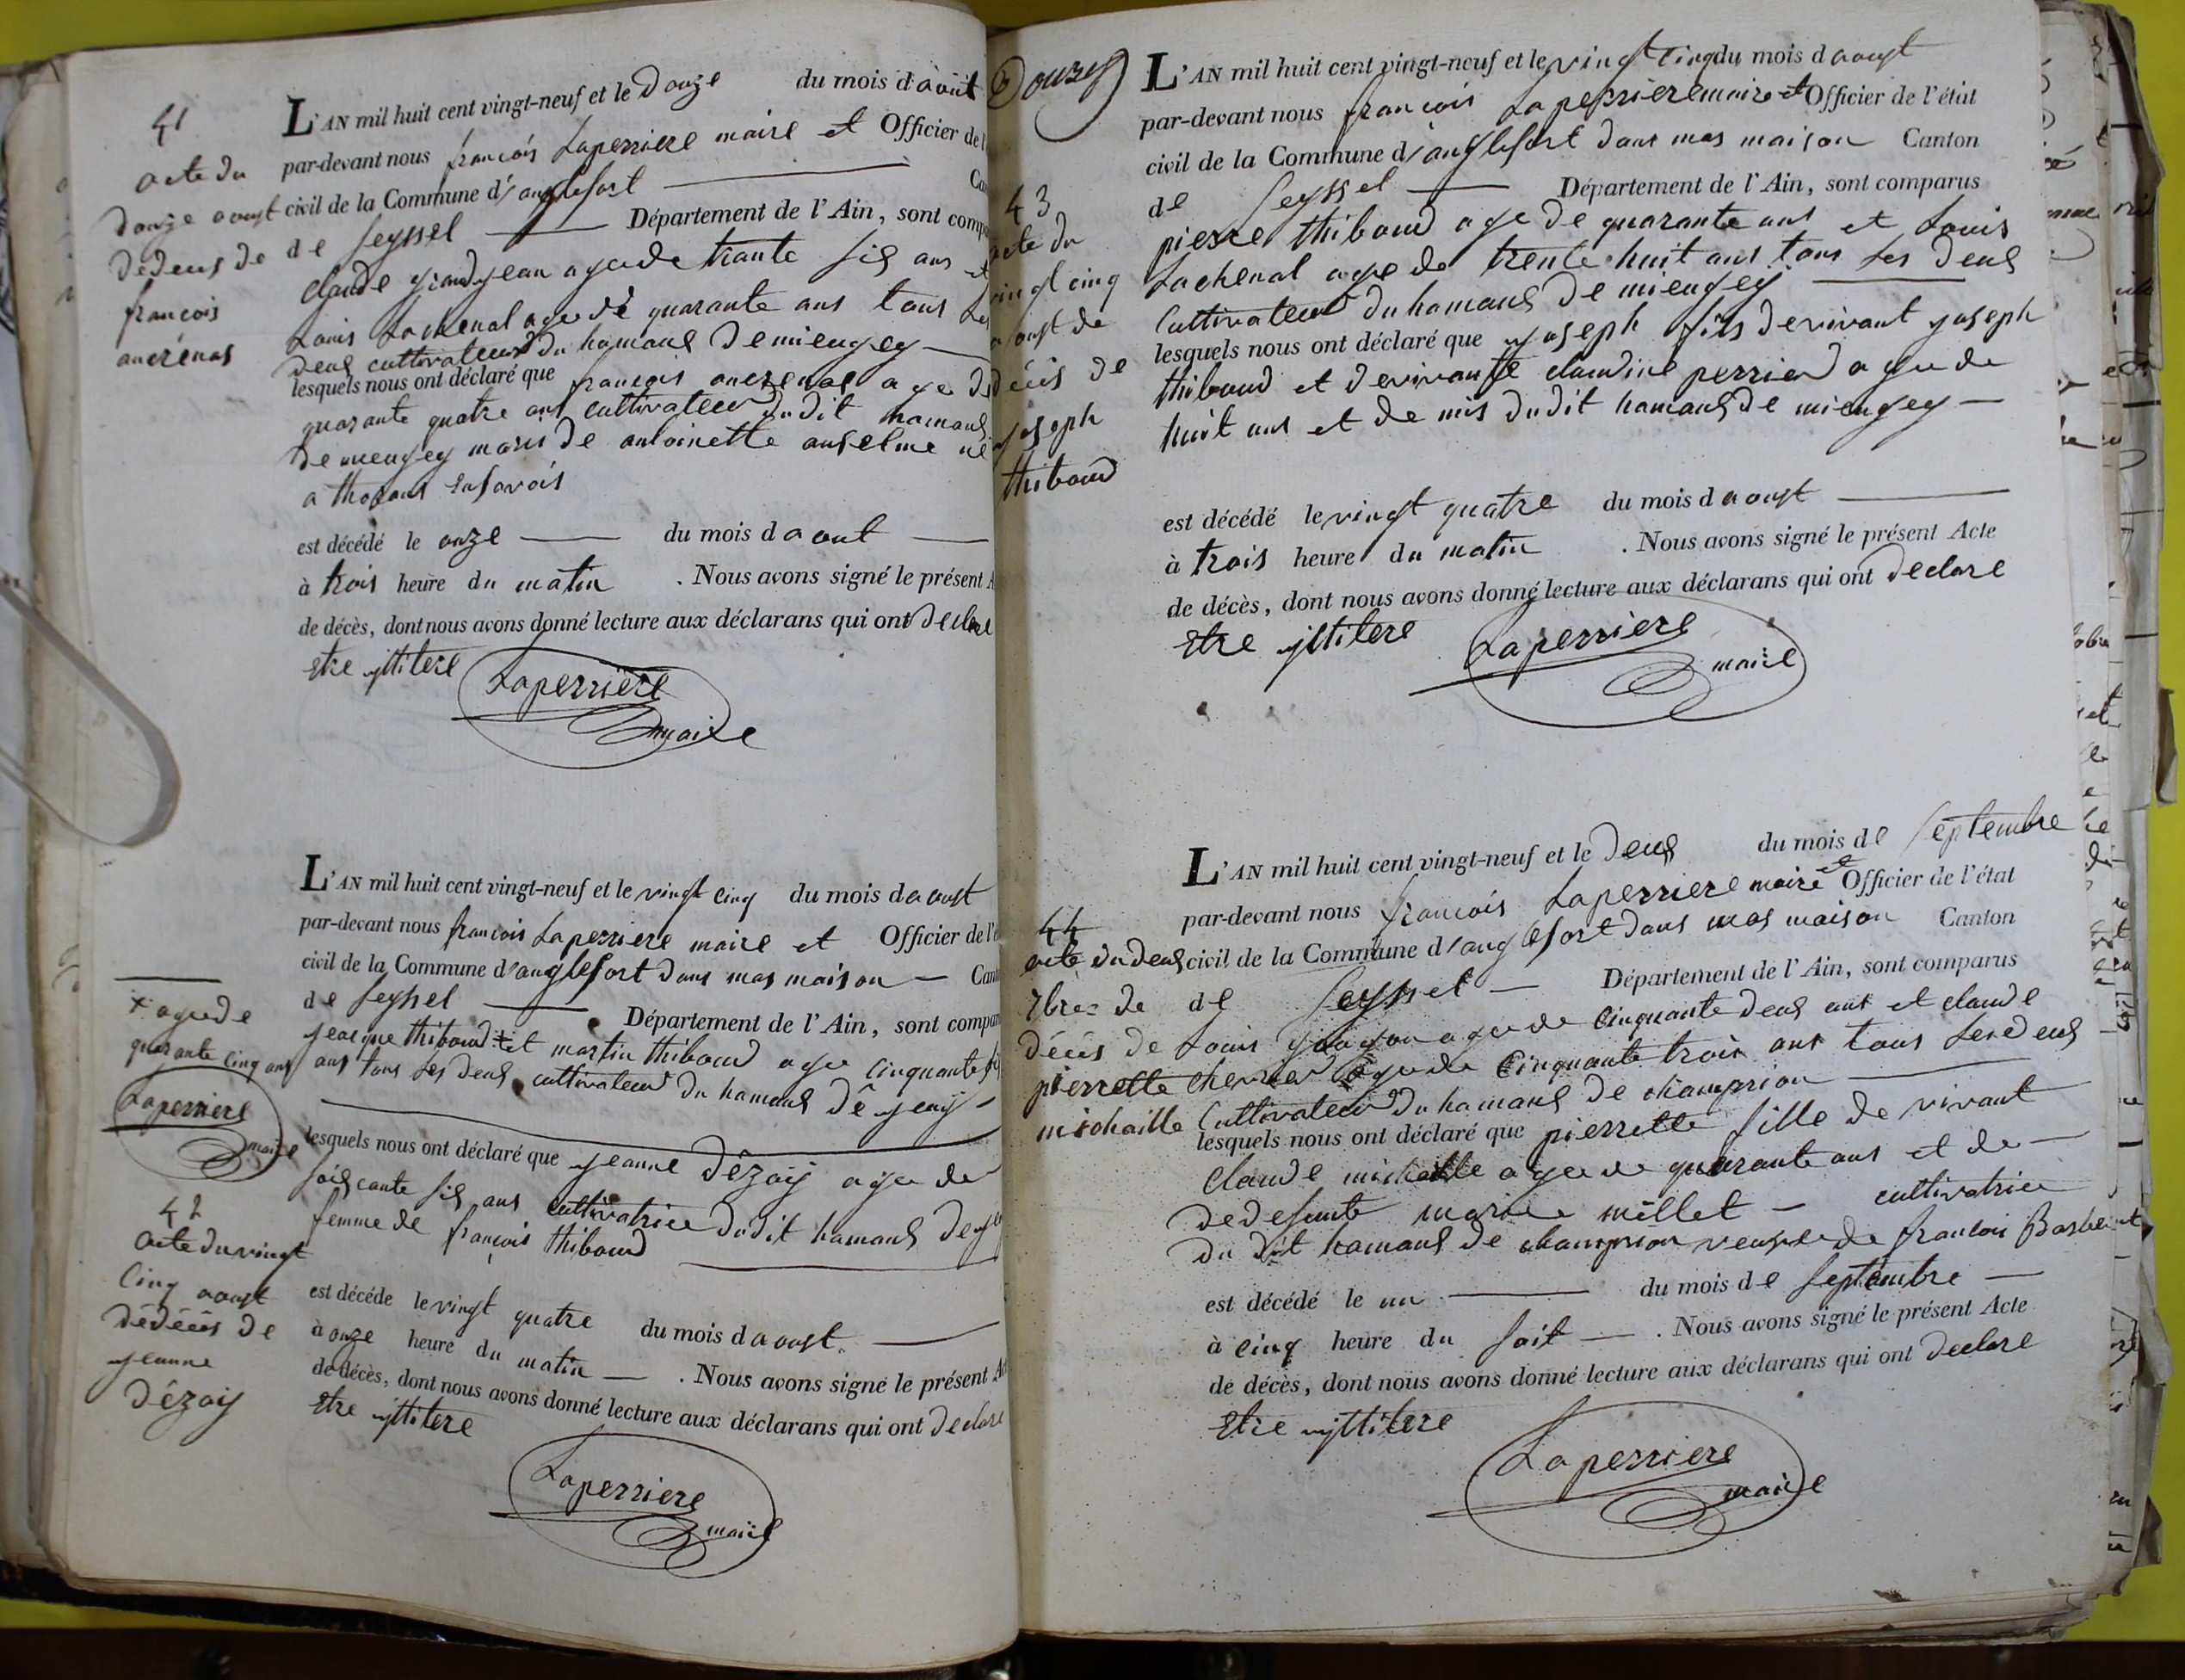 41
acte du
douze aoust
dedeus de
francois
ancrenas
L'AN mil huit cent vingt-neuf et le Douze du mois d août
par-devant nous francois Laperriere maire et Officier de l
civil de la Commune d'anglefort
de Seyssel Département de l'Ain, sont comp
Claude grandjean agee de trante six ans et
Louis Lachenal agee de quarante ans tous Les
deux cultivateur du hamaus De miengey
lesquels nous ont déclaré que francois ancrenas age de
quarante quatre ans cultivateur dudit hamaus
De miengey maris de antoinette anselme né
a en savois
est décédé le onze du mois d aout
à trois heure du matin . Nous avons signé le présent A
de décès, dont nous avons donné lecture aux déclarans qui ont declare
Etre ylitere
Laperriere
maire
L'AN mil huit cent vingt-neuf et le vingt cinq du mois d aoust
par-devant nous francois Laperriere maire et Officier de l'é
civil de la Commune d'anglefort dans mas maison — Cant
de Seyssel Département de l'Ain, sont compar
jeacque thiboud + et martin thiboud age cinquante si
ans tous Les deux cultivateur du hamaus de yeny
+ agee de
quarante cinq ans
Laperriere
maire
42
acte du vingt
cinq aoust
dédécès de
jeanne
Dézay
lesquels nous ont déclaré que jeanne Dézay agee de
soixcante six ans cultivatrice dudit hamaus de ye
femme de françois thiboud
est décéde le vingt quatre du mois d aoust
à onze heure du matin — . Nous avons signé le présent Ac
de décès, dont nous avons donné lecture aux déclarans qui ont declare
Etre yttitere
Laperriere
maire
Douzes
43
acte du
vingt cinq
aoust de
décis de
joseph
thiboud
L'AN mil huit cent vingt-neuf et le vingt cinq du mois d aoust
par-devant nous francois Laperriere maire et Officier de l'état
civil de la Commune d'anglefort dans mas maison Canton
de Seyssel Département de l'Ain, sont comparus
pierre thiboud age de quarante ans et Louis
Lachenal age de trente huit ans tous Les deux
Cultivateur du hamaus De miengey
lesquels nous ont déclaré que joseph fils de vivant joseph
thiboud et de vivante claudine perrier agee de
huit ans et de mis dudit hamaus de miengey —
est décédé le vingt quatre du mois d aoust
à trois heure du matin . Nous avons signé le présent Acte
de décès, dont nous avons donné lecture aux déclarans qui ont declare
Etre yttitere
Laperriere
maire
44
acte du deux
7bre de
décès de
pierrette
michaille
L'AN mil huit cent vingt-neuf et le Deux du mois de septembre
par-devant nous francois Laperriere maire et Officier de l'état
civil de la Commune d'anglefort dans mas maison Canton
de Seyssel — Département de l'Ain, sont comparus
Louis agee de cinquante deux ans et claude
agee de cinquante trois ans tous Les deux
Cultivateur du hamaus de champrion
lesquels nous ont déclaré que pierrette fille de vivant
Claude michaille agee de quarante ans et de —
dedefunte marie millet — cultivatrice
du dit hamaus de champrion veuve de francois Barbe
est décédé le un du mois de septembre —
à cinq heure du soit — . Nous avons signé le présent Acte
de décès, dont nous avons donné lecture aux déclarans qui ont declare
Etre yttitere
Laperriere
maire